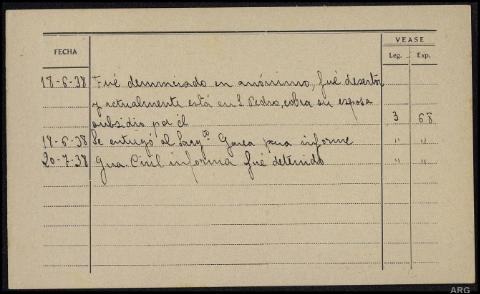 FECHA VEASE
Leg. Exp.
18-6-38 Fué denunciado en anónimo, fué desertor
y actualmente está en S. Pedro, cobra su esposa
subsidio por él 3 68
19-6-38 Se entregó al Sargto Garea para informe " "
20-7-38 Gua Civil informa fué detenido " "
ARG